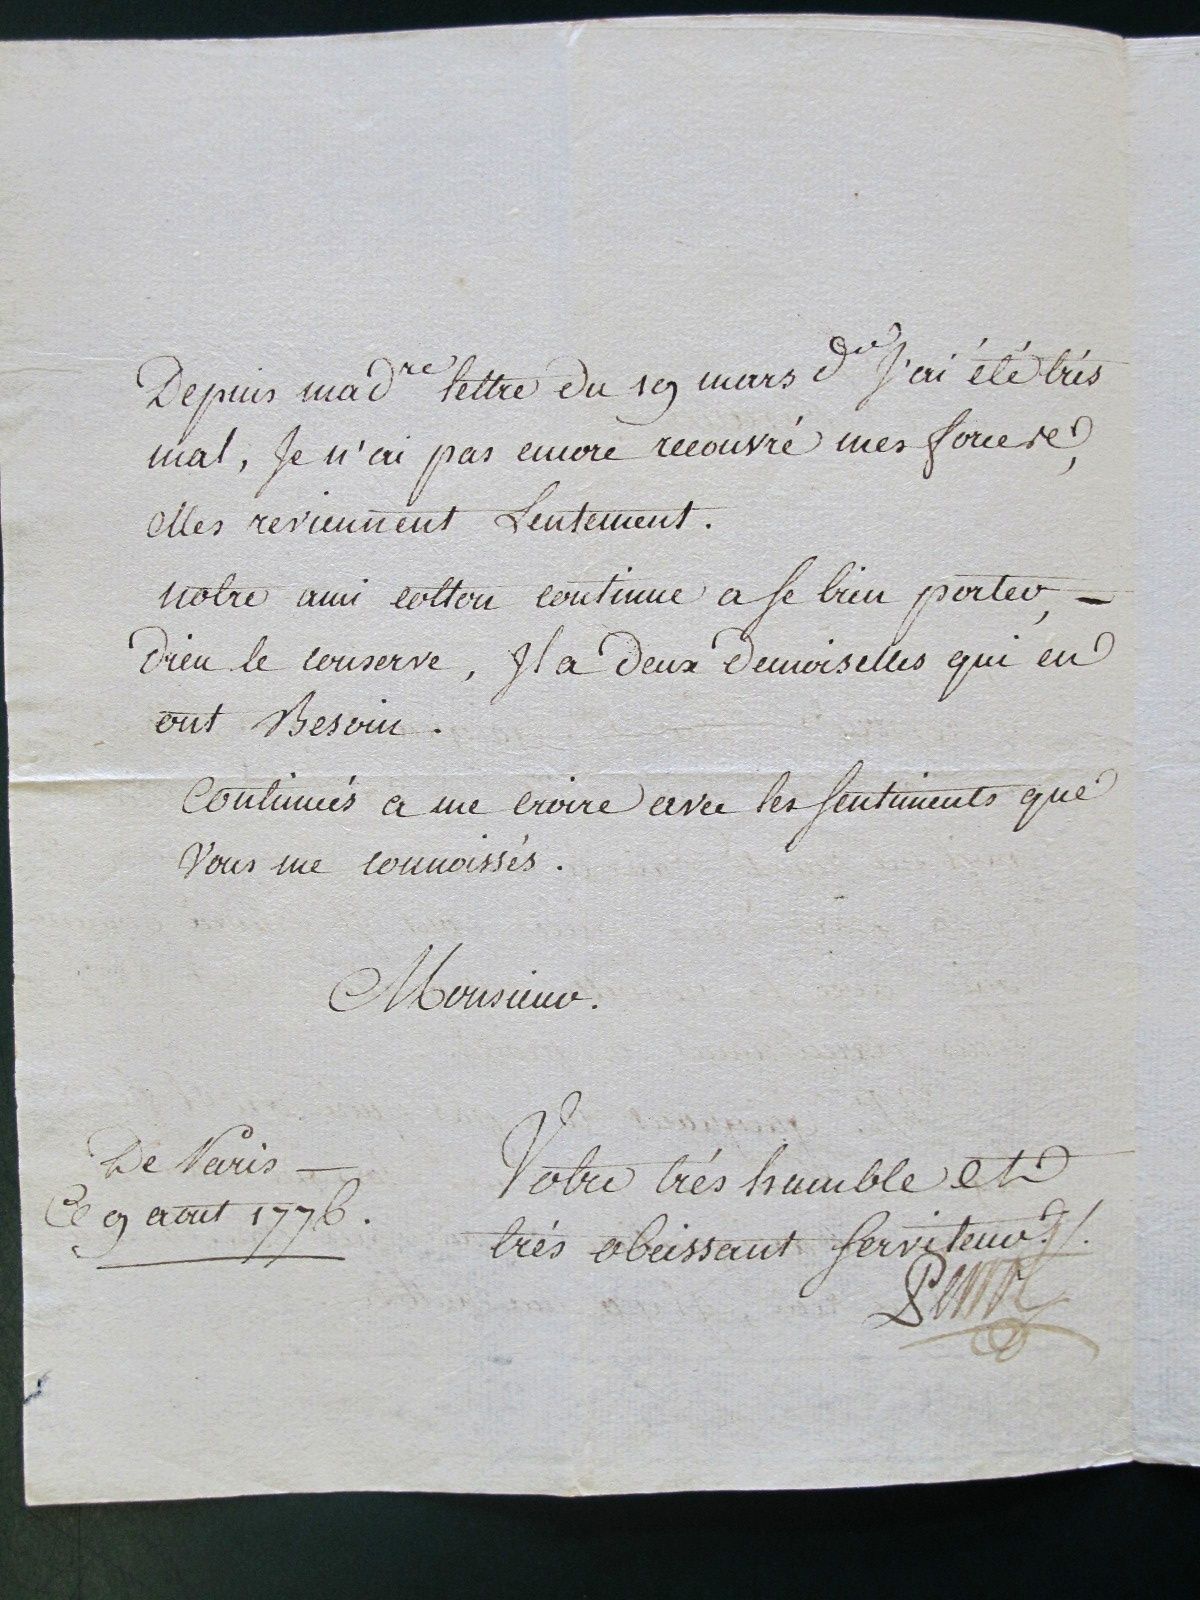 Depuis ma d.re lettre du 19 mars d.er J'ai été trés
mal, Je n'ai pas encore recouvré mes forces,
elles reviennent Lentement.
notre ami cotton continue a se bien porter, –
dieu le conserve, Il a Deux Demoiselles qui en
ont Besoin.
Continués a me croire avec les sentiments que
Vous me connoissés.
Monsieur.
De Paris –
Ce 9 aout 1776.
Votre trés humble et
trés obeissant serviteur ./.